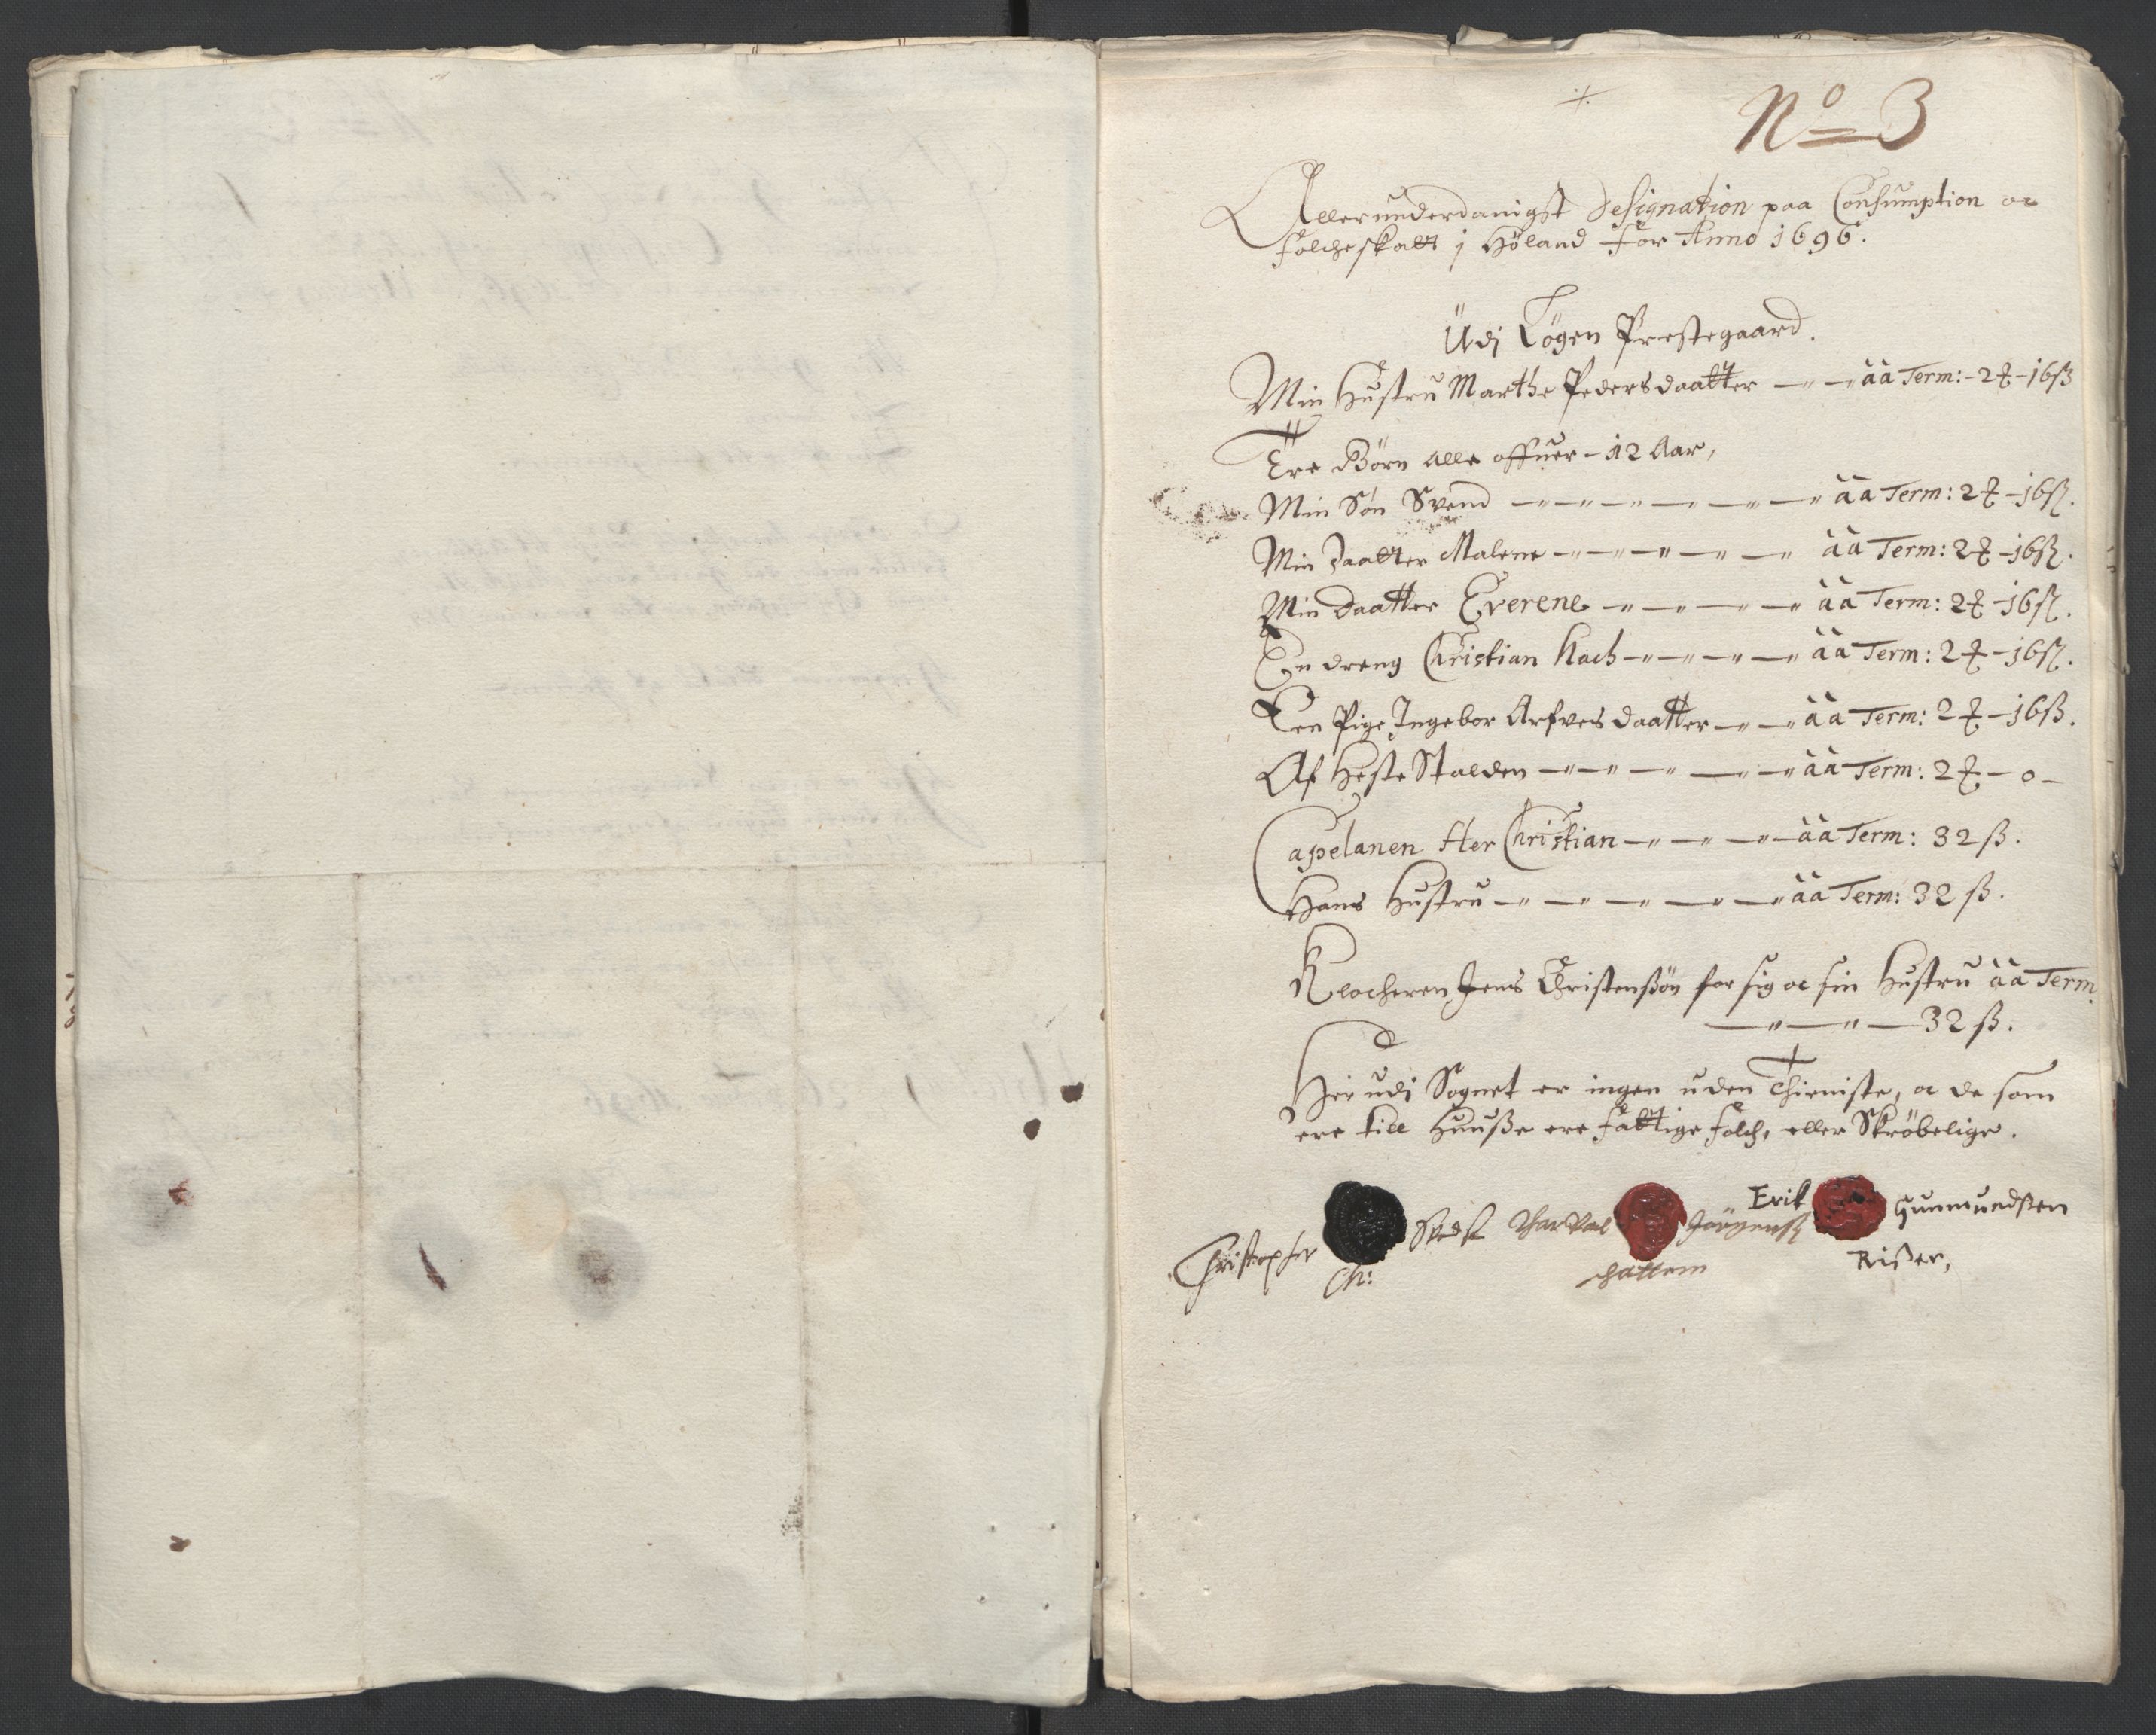 No 3
Allerunderdanigst Designation paa Consumption oc
folcheskatt i Höland for Anno 1696.
Udi Løgen Prestegaard.
Min Hustru Marthe Pedersdaatter — " — " àà Term: - 2 ƶ - 16 ß
Tre Börn alle offuer - 12 Aar,
Min Sön Svend — " — " — " — " — " — " àà Term: 2 ƶ - 16 ß.
Min Daatter Malene — " — " — " — " — " àà Term: 2 ƶ - 16 ß.
Min Daatter Everene — " — " — " — " àà Term: 2 ƶ - 16 ß.
En dreng Christian Koch — " — " — " — " àà Term: 2 ƶ - 16 ß.
Een Pige Ingebor Arfvesdaatter — " — " àà Term: 2 ƶ - 16 ß.
Af Heste Stalden — " — " — " — " — " àà Term: 2 ƶ - o -
Capelanen Her Christian — " — " — " — àà Term: 32 ß.
Hans Hustru — " — " — " — " — " àà Term: 32 ß.
Klocheren Jens Christensßön for sig oc sin Hustru àà Term
— " — " — 32 ß.
Her udi Sognet er ingen uden Thieniste, oc de som
ere till Huuse ere fattige folch, eller Skröbelige.
Erik Gunmundßen
Christopher Jörgenß
Ch: Rißer,